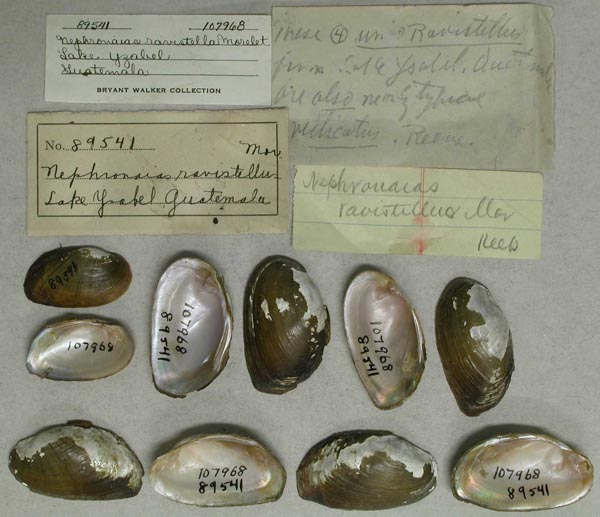 89541 107968
Nephronaias ravistella Morelet
Lake Yzabel
Guatemala
BRYANT WALKER COLLECTION
These (4) unio Ravistellus
from Lake Ysabel, Guatemala
are also nearly typical
Reeve.
No. 89541
Mor.
Nephronaias ravistellus
Lake Ysabel Guatemala
Nephronaias
ravistellus Mor
Keep
89541
107968
107968
89541
107968
89541
107968
89541
107968
89541